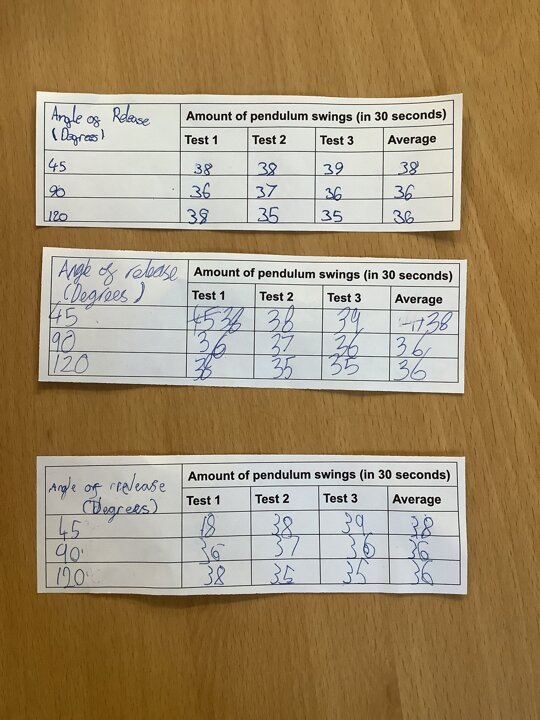 Angle of Release Amount of pendulum swings (in 30 seconds)
(Degrees) Test 1 Test 2 Test 3 Average
45 38 38 39 38
90 36 37 36 36
120 38 35 35 36
Angle of release Amount of pendulum swings (in 30 seconds)
(Degrees) Test 1 Test 2 Test 3 Average
45 45 38 38 39 38
90 36 37 36 36
120 36 35 35 36
Angle of release Amount of pendulum swings (in 30 seconds)
(Degrees) Test 1 Test 2 Test 3 Average
45 18 38 39 38
90 36 37 36 36
120 38 35 35 36